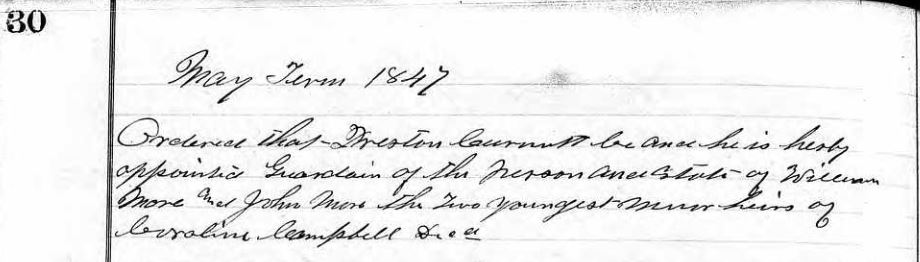 30
May Term 1847
Ordered that Preston be and he is herby
appointed Guardain of the person and Estate of William
More and John More the Two youngest minor heirs of
Caroline Campbell Decd